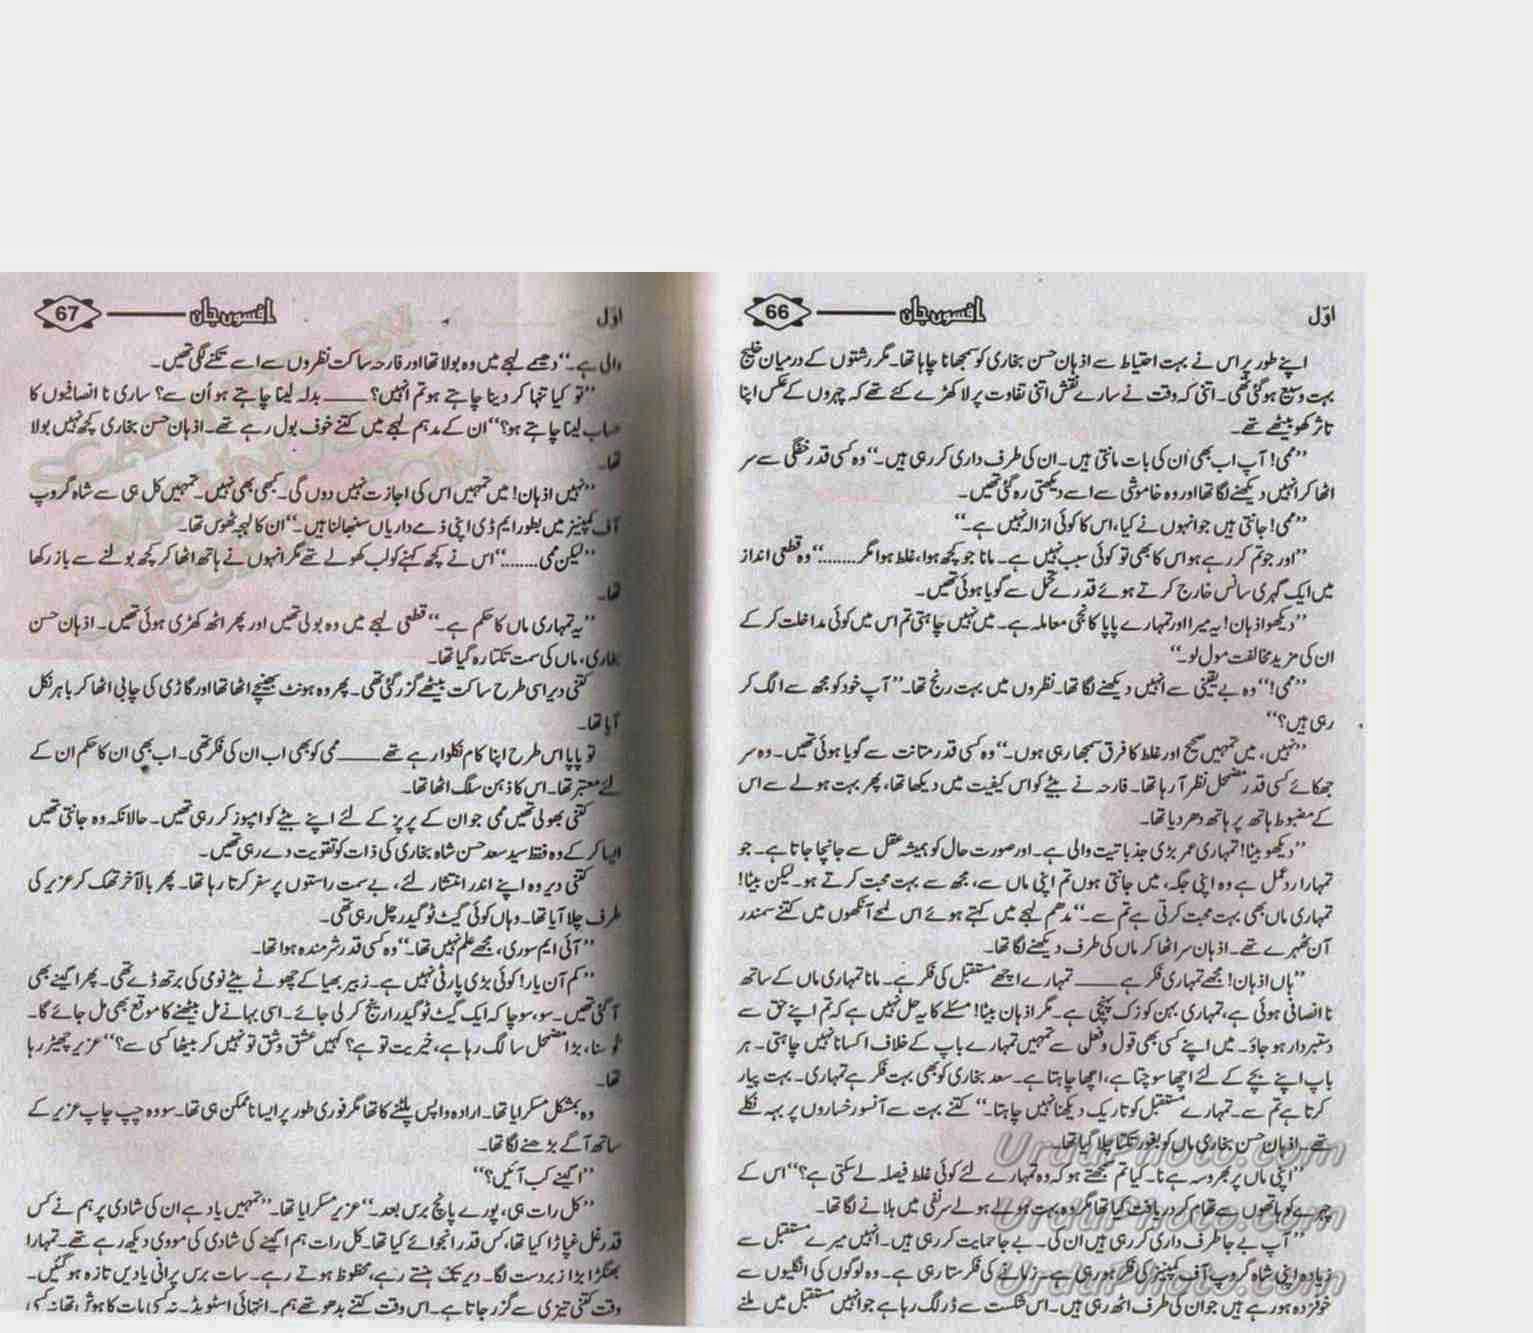 اوّل
افسوں جان
66
اپنے طور پر اس نے بہت احتیاط سے اذہان حسن بخاری کو سمجھانا چاہا تھا۔ مگر رشتوں کے درمیان خلیج
بہت وسیع ہو گئی تھی۔ اتنی کہ وقت نے سارے نقش اتنی تفاوت پر لا کھڑے کئے تھے کہ چہروں کے عکس اپنا
تاثر کھو بیٹھے تھے۔
”ممی! آپ اب بھی ان کی بات مانتی ہیں۔ ان کی طرف داری کر رہی ہیں۔“ وہ کسی قدر خفگی سے سر
اٹھا کر انہیں دیکھنے لگا تھا اور وہ خاموشی سے اسے دیکھتی رہ گئی تھیں۔
”ممی! جانتی ہیں جو انہوں نے کیا، اس کا کوئی ازالہ نہیں ہے۔“
”اور جو تم کر رہے ہو اس کا بھی تو کوئی سبب نہیں ہے۔ مانا جو کچھ ہوا، غلط ہوا مگر........“ وہ قطعی انداز
میں ایک گہری سانس خارج کرتے ہوئے قدرے تحمل سے گویا ہوئی تھیں۔
”دیکھو اذہان! یہ میرا اور تمہارے پاپا کا نجی معاملہ ہے۔ میں نہیں چاہتی تم اس میں کوئی مداخلت کر کے
ان کی مزید مخالفت مول لو۔“
”ممی!“ وہ بے یقینی سے انہیں دیکھنے لگا تھا۔ نظروں میں بہت رنج تھا۔ ”آپ خود کو مجھ سے الگ کر
رہی ہیں؟“
”نہیں، میں تمہیں صحیح اور غلط کا فرق سمجھا رہی ہوں۔“ وہ کسی قدر متانت سے گویا ہوئی تھیں۔ وہ سر
جھکائے کسی قدر مضمحل نظر آ رہا تھا۔ فارحہ نے بیٹے کو اس کیفیت میں دیکھا تھا، پھر بہت ہولے سے اس
کے مضبوط ہاتھ پر ہاتھ دھر دیا تھا۔
”دیکھو بیٹا! تمہاری عمر بڑی جذباتیت والی ہے۔ اور صورت حال کو ہمیشہ عقل سے جانچا جاتا ہے۔ جو
تمہارا ردعمل ہے وہ اپنی جگہ، میں جانتی ہوں تم اپنی ماں سے، مجھ سے بہت محبت کرتے ہو۔ لیکن بیٹا!
تمہاری ماں بھی بہت محبت کرتی ہے تم سے۔“ مدھم لہجے میں کہتے ہوئے اس لمحے آنکھوں میں کتنے سمندر
آن ٹھہرے تھے۔ اذہان سر اٹھا کر ماں کی طرف دیکھنے لگا تھا۔
”ہاں اذہان! مجھے تمہاری فکر ہے ____ تمہارے اچھے مستقبل کی فکر ہے۔ مانا تمہاری ماں کے ساتھ
نا انصافی ہوئی ہے، تمہاری بہن کو زک پہنچی ہے۔ مگر اذہان بیٹا! مسئلے کا یہ حل نہیں ہے کہ تم اپنے حق سے
دستبردار ہو جاؤ۔ میں اپنے کسی بھی قول و فعل سے تمہیں تمہارے باپ کے خلاف اکسانا نہیں چاہتی۔ ہر
باپ اپنے بچے کے لئے اچھا سوچتا ہے، اچھا چاہتا ہے۔ سعد بخاری کو بھی بہت فکر ہے تمہاری۔ بہت پیار
کرتا ہے تم سے۔ تمہارے مستقبل کو تاریک دیکھنا نہیں چاہتا۔“ کتنے بہت سے آنسو رخساروں پر بہہ نکلے
تھے۔ اذہان حسن بخاری ماں کو بغور تکتا چلا گیا تھا۔
”اپنی ماں پر بھروسہ ہے نا۔ کیا تم سمجھتے ہو کہ وہ تمہارے لئے کوئی غلط فیصلہ لے سکتی ہے؟“ اس کے
چہرے کو ہاتھوں سے تھام کر دریافت کیا تھا مگر وہ بہت ہولے ہولے سر نفی میں ہلانے لگا تھا۔
”آپ بے جا طرف داری کر رہی ہیں ان کی۔ بے جا حمایت کر رہی ہیں۔ انہیں میرے مستقبل سے
زیادہ اپنی شاہ گروپ آف کمپنیز کی فکر ہو رہی ہے۔ زمانے کی فکر ستا رہی ہے۔ وہ لوگوں کی انگلیوں سے
خوفزدہ ہو رہے ہیں جو ان کی طرف اٹھ رہی ہیں۔ اس شکست سے ڈر لگ رہا ہے جو انہیں مستقبل میں ملنے
UrduPhoto.com
UrduPhoto.com
UrduPhoto.com
اوّل
افسوں جان
67
والی ہے۔“ دھیمے لہجے میں وہ بولا تھا اور فارحہ ساکت نظروں سے اسے تکنے لگی تھیں۔
”تو کیا تنہا کر دینا چاہتے ہو تم انہیں؟ ____ بدلہ لینا چاہتے ہو اُن سے؟ ساری نا انصافیوں کا
حساب لینا چاہتے ہو؟“ ان کے مدہم لہجے میں کتنے خوف بول رہے تھے۔ اذہان حسن بخاری کچھ نہیں بولا
تھا۔
”نہیں اذہان! میں تمہیں اس کی اجازت نہیں دوں گی۔ کبھی بھی نہیں۔ تمہیں کل ہی سے شاہ گروپ
آف کمپنیز میں بطور ایم ڈی اپنی ذمے داریاں سنبھالنا ہیں۔“ ان کا لہجہ ٹھوس تھا۔
”لیکن ممی.......“ اس نے کچھ کہنے کو لب کھولے تھے مگر انہوں نے ہاتھ اٹھا کر کچھ بولنے سے باز رکھا
تھا۔
”یہ تمہاری ماں کا حکم ہے۔“ قطعی لہجے میں وہ بولی تھیں اور پھر اٹھ کھڑی ہوئی تھیں۔ اذہان حسن
بخاری، ماں کی سمت تکتا رہ گیا تھا۔
کتنی دیر اسی طرح ساکت بیٹھے گزر گئی تھی۔ پھر وہ ہونٹ بھینچے اٹھا تھا اور گاڑی کی چابی اٹھا کر باہر نکل
آیا تھا۔
تو پاپا اس طرح اپنا کام نکلوا رہے تھے ____ ممی کو بھی اب ان کی فکر تھی۔ اب بھی ان کا حکم ان کے
لئے معتبر تھا۔ اس کا ذہن سلگ اٹھا تھا۔
کتنی بھولی تھیں ممی جو ان کے پریز کے لئے اپنے بیٹے کو امپوز کر رہی تھیں۔ حالانکہ وہ جانتی تھیں
ایسا کر کے وہ فقط سید سعد حسن شاہ بخاری کی ذات کو تقویت دے رہی تھیں۔
کتنی دیر وہ اپنے اندر انتشار لئے، بے سمت راستوں پر سفر کرتا رہا تھا۔ پھر بالآخر تھک کر عزیر کی
طرف چلا آیا تھا۔ وہاں کوئی گیٹ ٹو گیدر چل رہی تھی۔
”آئی ایم سوری، مجھے علم نہیں تھا۔“ وہ کسی قدر شرمندہ ہوا تھا۔
”کم آن یار! کوئی بڑی پارٹی نہیں ہے۔ زبیر بھیا کے چھوٹے بیٹے نومی کی برتھ ڈے تھی۔ پھر اگینے بھی
آ گئی تھیں۔ سو، سوچا کہ ایک گیٹ ٹو گیدر ارینج کر لی جائے۔ اسی بہانے مل بیٹھنے کا موقع بھی مل جائے گا۔
تو سنا، بڑا مضمحل سا لگ رہا ہے، خیریت تو ہے؟ کہیں عشق وشق تو نہیں کر بیٹھا کسی سے؟“ عزیر چھیڑ رہا
تھا۔
وہ بمشکل مسکرایا تھا۔ ارادہ واپس پلٹنے کا تھا مگر فوری طور پر ایسا ناممکن ہی تھا۔ سو وہ چپ چاپ عزیر کے
ساتھ آگے بڑھنے لگا تھا۔
”اگینے کب آئیں؟“
”کل رات ہی، پورے پانچ برس بعد۔“ عزیر مسکرایا تھا۔ ”تمہیں یاد ہے ان کی شادی پر ہم نے کس
قدر غل غپاڑا کیا تھا، کس قدر انجوائے کیا تھا۔ کل رات ہم اگینے کی شادی کی مووی دیکھ رہے تھے۔ تمہارا
بھنگڑا بڑا زبردست لگا۔ دیر تک ہنستے رہے، محظوظ ہوتے رہے۔ سات برس پرانی یادیں تازہ ہو گئیں۔
وقت کتنی تیزی سے گزر جاتا ہے۔ اس وقت کتنے بدھو تھے ہم۔ انتہائی اسٹوپڈ۔ نہ کسی بات کا ہوش تھا نہ کسی